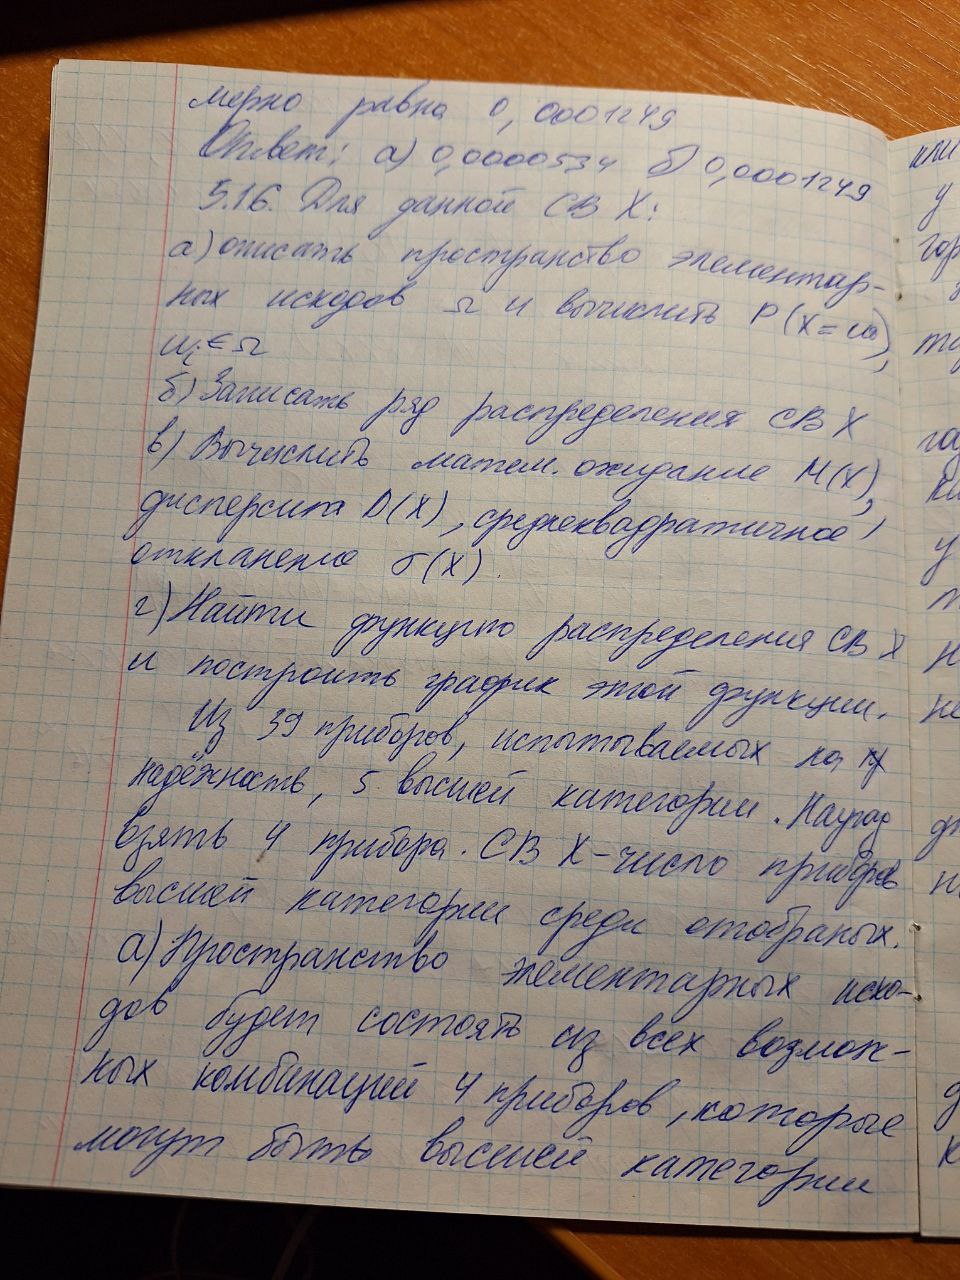 мерно равна 0,0001249
Ответ: а) 0,0000534 б) 0,0001249
5.16. Для данной СВ X:
а) описать пространство элементар-
ных исходов Ω и вычислить P(X=ω),
ω_i ∈ Ω
б) Записать ряд распределения СВ X
в) Вычислить матем. ожидание M(X),
дисперсию D(X), среднеквадратичное
отклонение σ(X).
г) Найти функцию распределения СВ X
и построить график этой функции.
Из 39 приборов, испытываемых на
надёжность, 5 высшей категории. Наугад
взять 4 прибора. СВ X - число приборов
высшей категории среди отобраных.
а) Пространство элементарных исхо-
дов будет состоять из всех возмож-
ных комбинаций 4 приборов, которые
могут быть высшей категории
или
у
гор